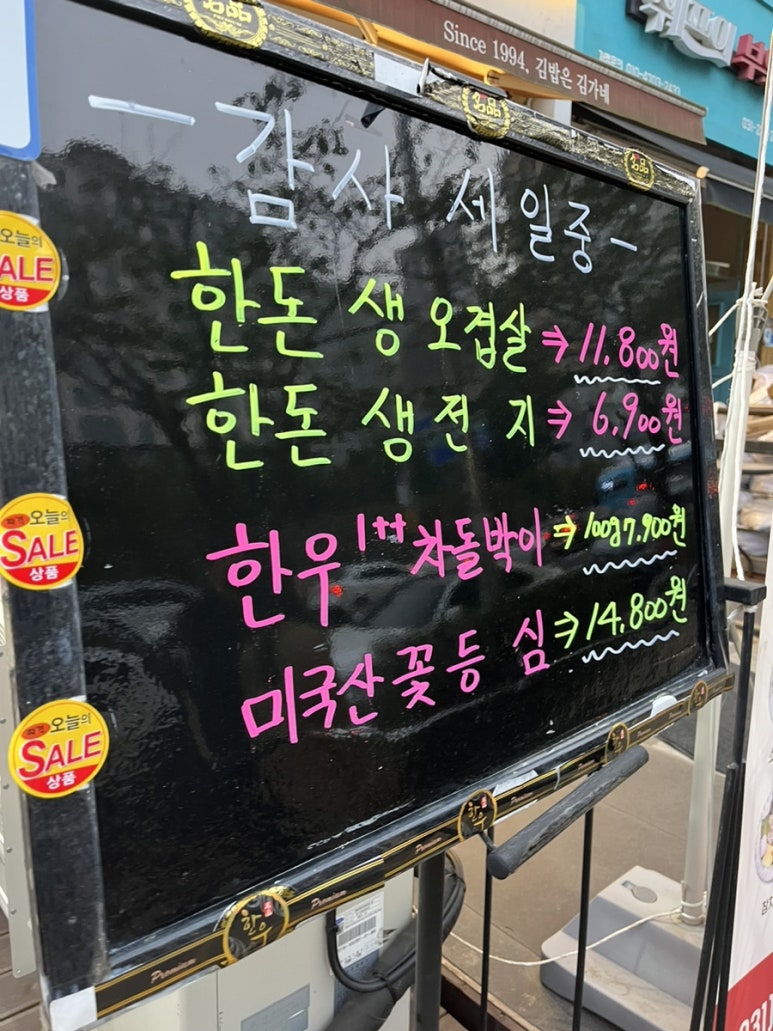 Since 1994, 김밥은 김가네
名品
名品
名品
- 감사 세일중 -
한돈 생 오겹살 ⇒ 11.800원
한돈 생전지 ⇒ 6.900원
한우 1++ 차돌박이 ⇒ 100g 7.900원
미국산 꽃등심 ⇒ 14.800원
오늘의
SALE
상품
오늘의
SALE
상품
오늘의
SALE
상품
한우
Premium
Premium
한우
Premium